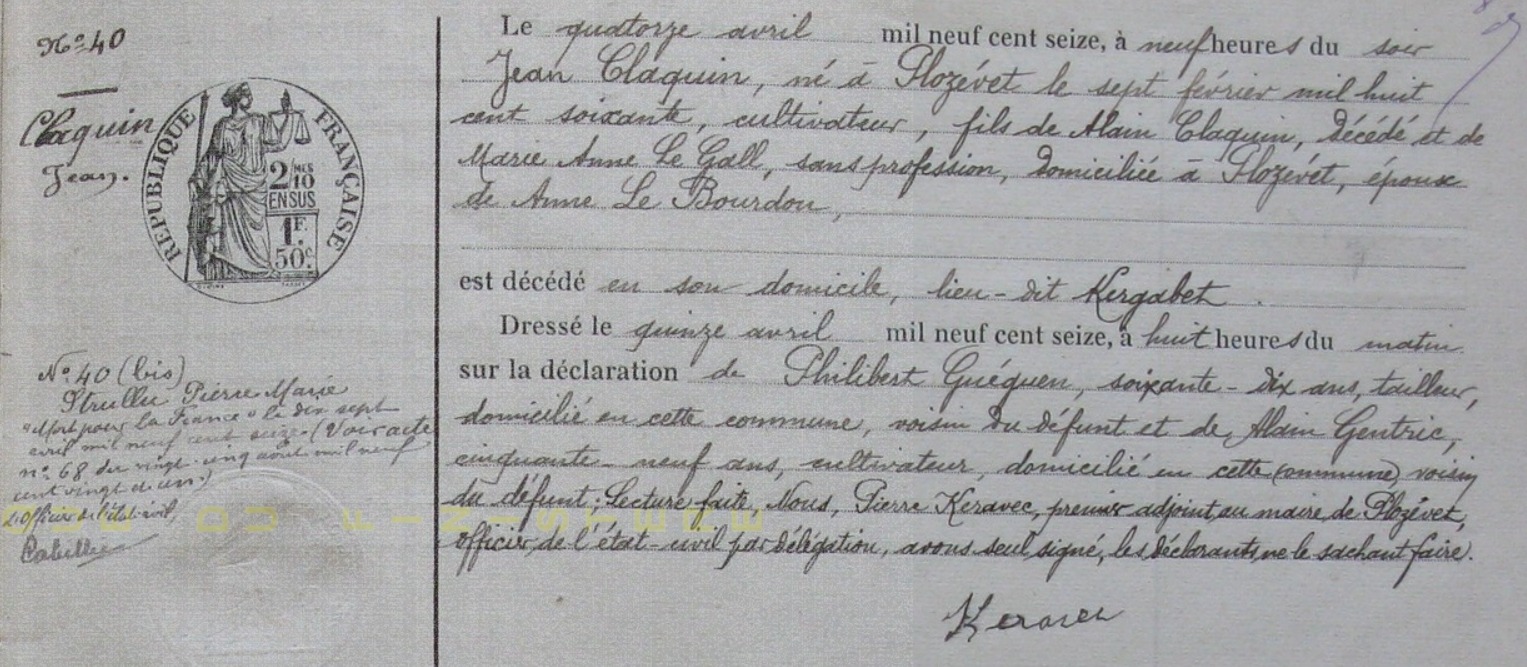 N° 40
Claquin
Jean.
RÉPUBLIQUE FRANÇAISE
2/10 MES
EN SUS
1F.
50c.
Le quatorze avril mil neuf cent seize, à neuf heures du soir
Jean Claquin, né à Plozévet le sept février mil huit
cent soixante, cultivateur, fils de Alain Claquin, décédé et de
Marie Anne Le Gall, sans profession, domiciliée à Plozévet, époux
de Anne Le Bourdon,
est décédé en son domicile, lieu-dit Kergabet.
Dressé le quinze avril mil neuf cent seize, à huit heures du matin
sur la déclaration de Philibert Guéguen, soixante-dix ans, tailleur,
domicilié en cette commune, voisin du défunt et de Alain Gentric,
cinquante-neuf ans, cultivateur, domicilié en cette commune, voisin
du défunt; Lecture faite, Nous, Pierre Keravec, premier adjoint au maire de Plozévet,
officier de l'état-civil par délégation, avons seul signé, les déclarants ne le sachant faire.
Keravec
N° 40 (bis)
Strullu Pierre Marie
"Mort pour la France" le dix sept
avril mil neuf cent seize (Voir acte
n° 68 du vingt-cinq août mil neuf
cent vingt et un.)
L'Officier de l'état-civil,
DU FINISTERE